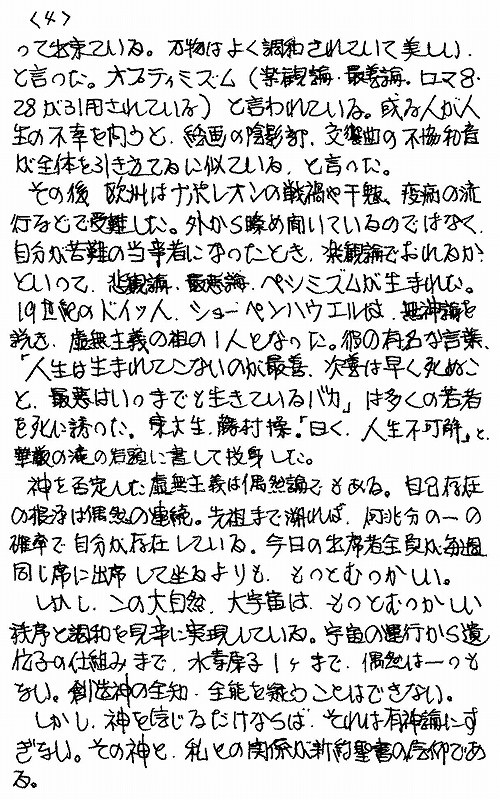 〈4〉
って出来ている。万物はよく調和されていて美しい、
と言った。オプティミズム（楽観論・最善論。ロマ8・
28が引用されている）と言われている。或る人が人
生の不幸を問うと、絵画の陰影部、交響曲の不協和音
が全体を引き立てるに似ている、と言った。
その後 欧州はナポレオンの戦禍や干魃、疫病の流
行などで受難した。外から眺め聞いているのではなく、
自分が苦難の当事者になったとき、楽観論でおれるか
といって、悲観論・最悪論・ペシミズムが生まれた。
19世紀のドイツ人、ショーペンハウエルは、無神論を
説き、虚無主義の祖の1人となった。彼の有名な言葉、
「人生は生まれてこないのが最善、次善は早く死ぬこ
と、最悪はいつまでも生きているバカ」は多くの若者
を死に誘った。東大生、藤村操。「曰く、人生不可解」と、
華厳の滝の岩頭に書して投身した。
神を否定した虚無主義は偶然論でもある。自己存在
の根源は偶然の連続。先祖まで溯れば、何兆分の一の
確率で自分が存在している。今日の出席者全員が毎週
同じ席に出席して坐るよりも、もっとむつかしい。
しかし、この大自然、大宇宙は、もっとむつかしい
秩序と調和を見事に実現している。宇宙の運行から遺
伝子の仕組みまで、水素原子1ケまで、偶然は一つも
ない。創造神の全知・全能を疑うことはできない。
しかし、神を信じるだけならば、それは有神論にす
ぎない。その神と、私との関係が新約聖書の信仰であ
る。